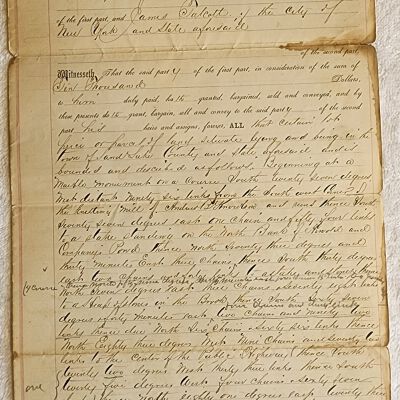 of the first part, and James Talcott, of the City of
New York and State aforesaid
of the second part,
Witnesseth, That the said party of the first part, in consideration of the sum of
Ten Thousand Dollars,
to him duly paid, hath granted, bargained, sold and conveyed, and by
these presents doth grant, bargain, sell and convey to the said party of the second
part his heirs and assigns, forever, ALL that certain lot
piece or parcel of land situate lying and being in the
town of Sand Lake County and State aforesaid and is
bounded and described as follows. Beginning at a
Marble monument on a Course South twenty seven degrees
West distant Ninety Six links from the South west Corner of
the Knitting Mill of and runs thence South
Seventy seven degrees east one Chain and fifty four links
to a Stake standing on the North Bank of and
Companys Pond thence North Seventy three degrees and
thirty minutes East three Chains thence South thirty degrees
east two Chains
North Seven degrees West three Chains & seventy eight links
to a Heap of Stones in the Brook thence North Sixty seven
degrees & forty minutes east two Chains and Ninety two
links thence due North Six Chains & Sixty six links thence
North Eighty three degrees West Nine Chains and Seventy
links to the Center of the Public Highway thence South
twenty two degrees West thirty three links thence South
twenty five degrees West four Chains & Sixty seven
North eighty one degrees east twenty three